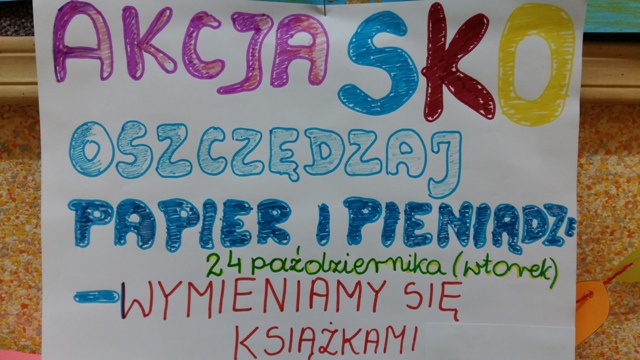 AKCJA SKO
OSZCZĘDZAJ
PAPIER I PIENIĄDZE
24 października (wtorek)
- WYMIENIAMY SIĘ
KSIĄŻKAMI